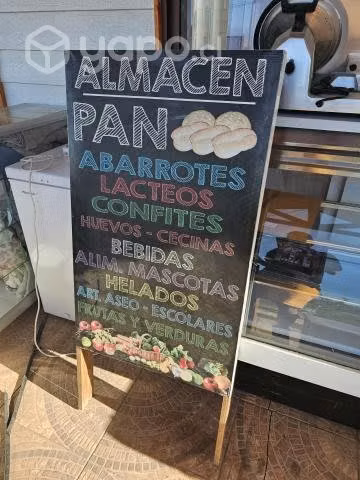 yapo.cl
ALMACEN
PAN
ABARROTES
LACTEOS
CONFITES
HUEVOS - CECINAS
BEBIDAS
ALIM. MASCOTAS
HELADOS
ART. ASEO - ESCOLARES
FRUTAS Y VERDURAS